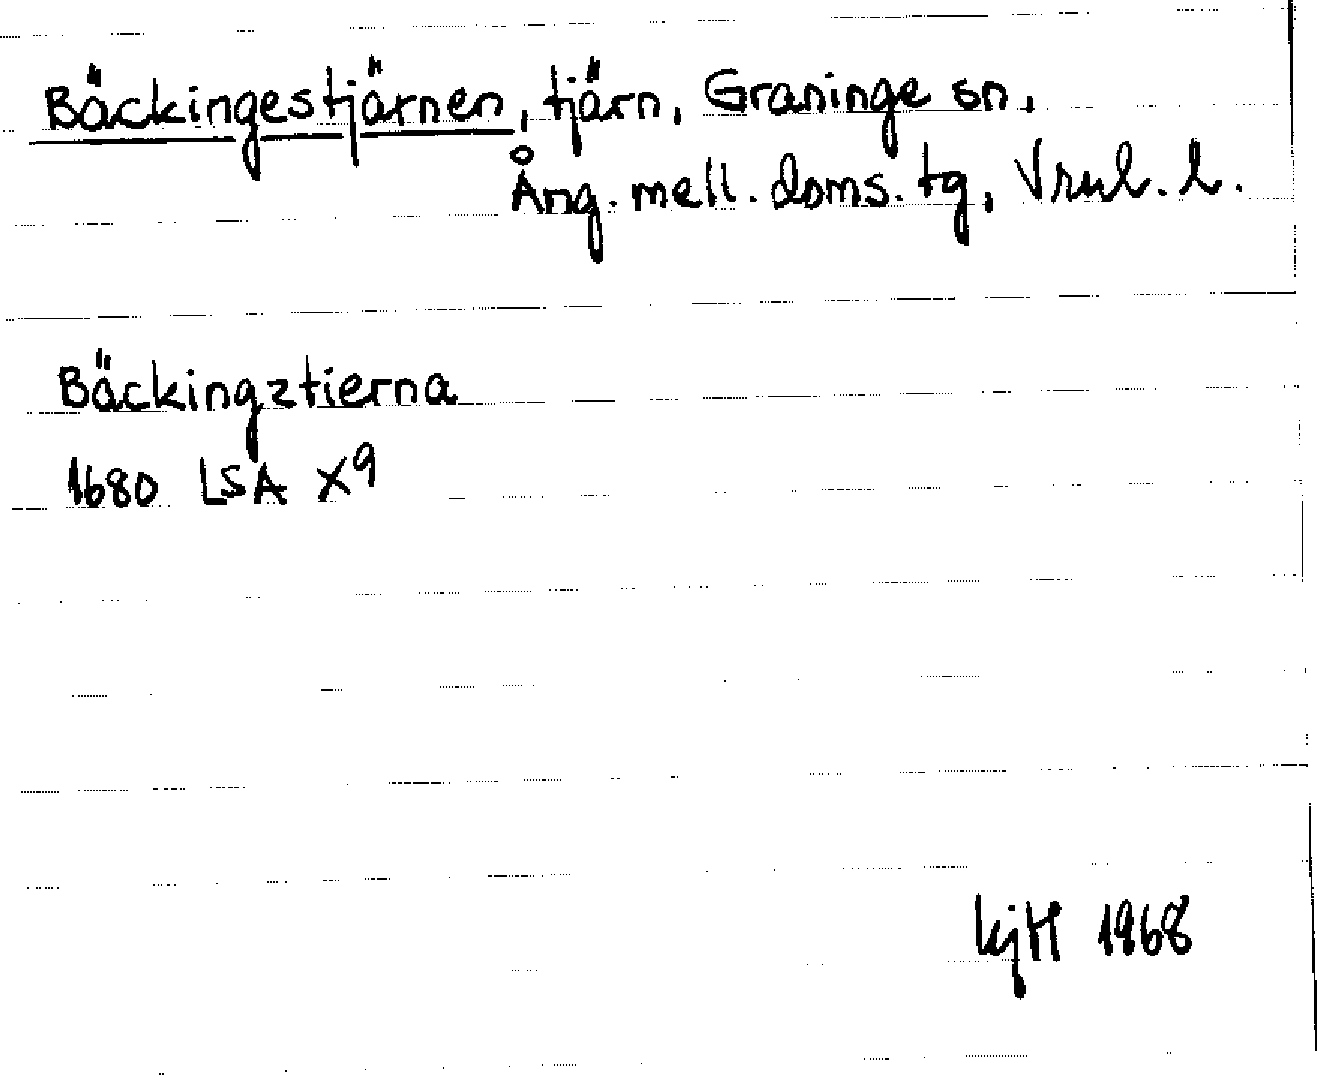 Bäckingestjärnen, tjärn, Graninge sn,
Ång. mell. doms. tg, Vrnl. l.
Bäckingztierna
1680 LSA X9
kjH 1968